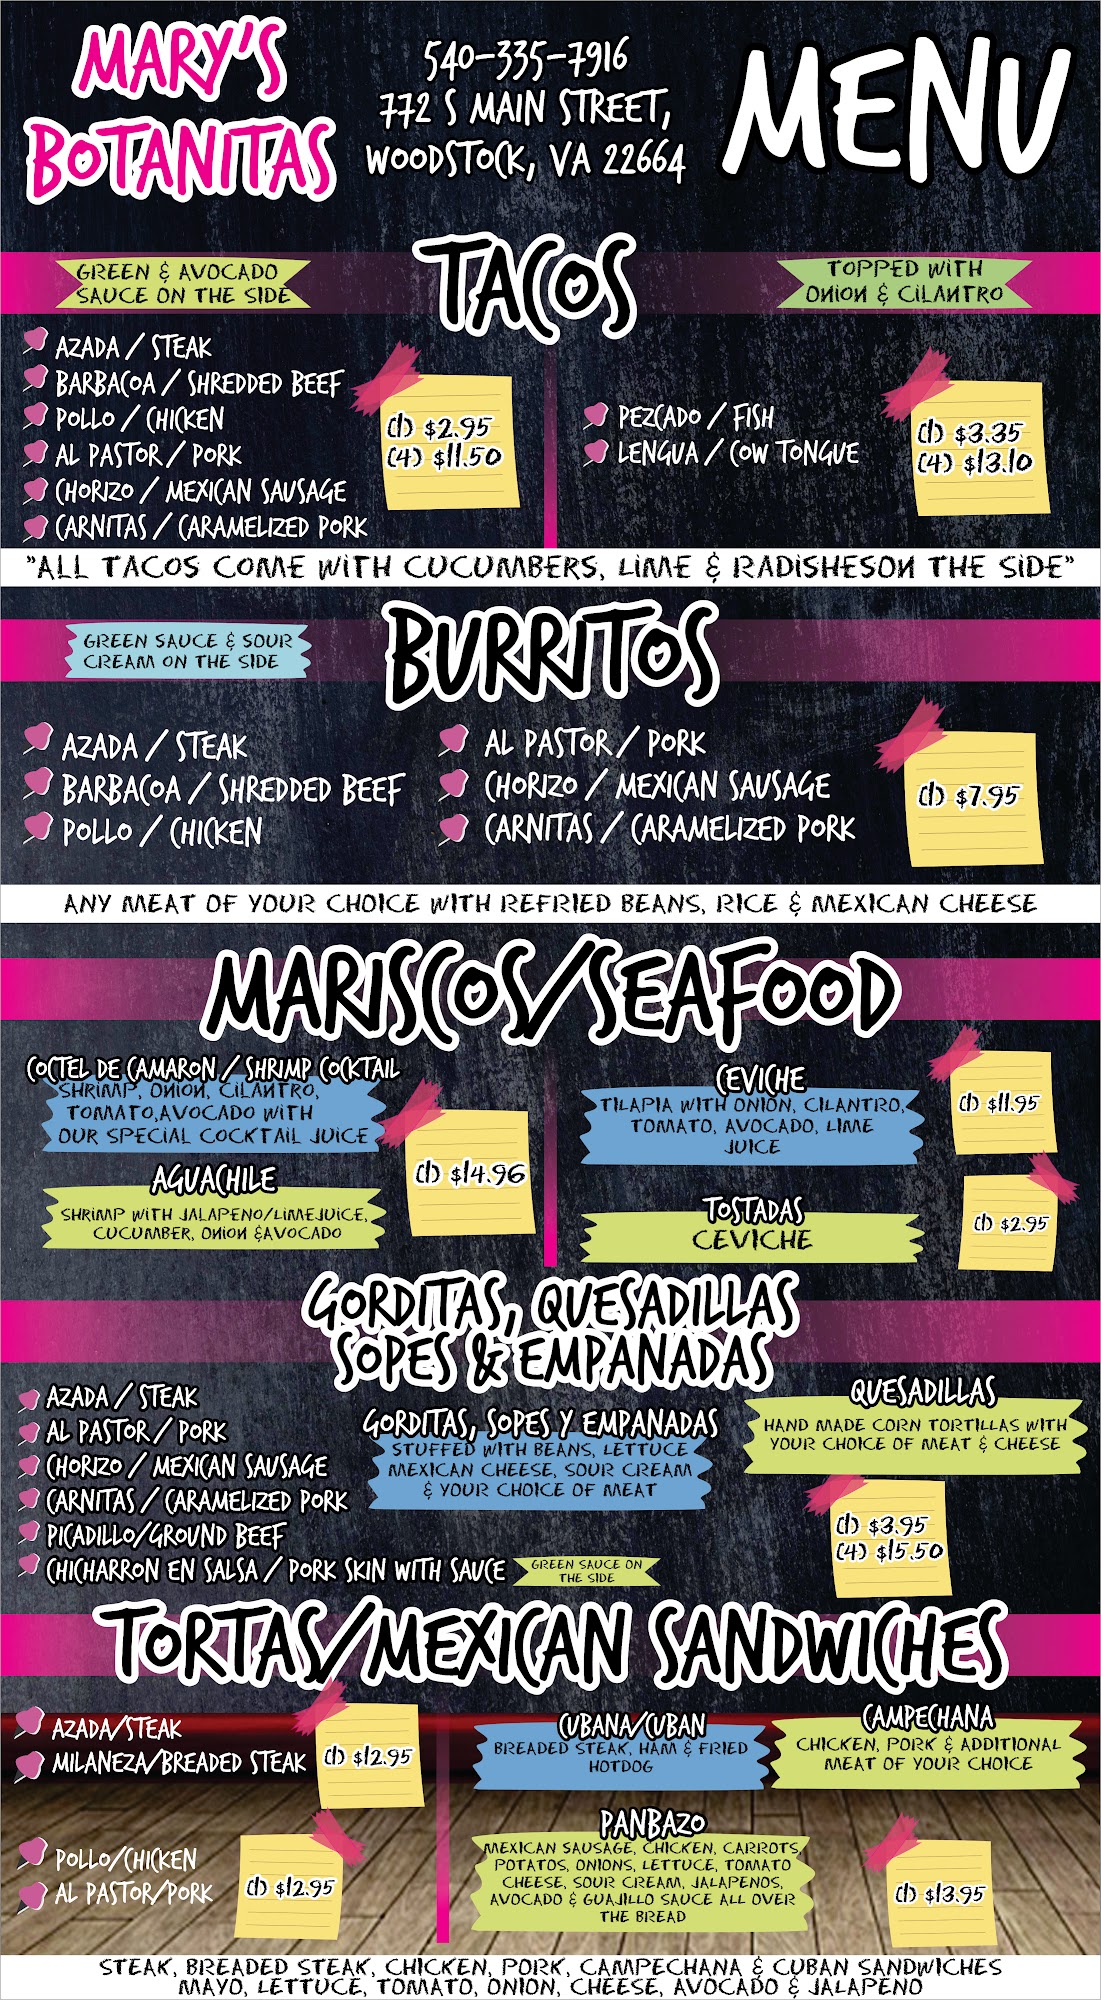 MARY'S
BOTANITAS
540-335-7916
772 S MAIN STREET,
WOODSTOCK, VA 22664
MENU
TACOS
GREEN & AVOCADO
SAUCE ON THE SIDE
TOPPED WITH
ONION & CILANTRO
AZADA / STEAK
BARBACOA / SHREDDED BEEF
POLLO / CHICKEN
AL PASTOR / PORK
CHORIZO / MEXICAN SAUSAGE
CARNITAS / CARAMELIZED PORK
(1) $2.95
(4) $11.50
PEZCADO / FISH
LENGUA / COW TONGUE
(1) $3.35
(4) $13.10
"ALL TACOS COME WITH CUCUMBERS, LIME & RADISHESON THE SIDE"
BURRITOS
GREEN SAUCE & SOUR
CREAM ON THE SIDE
AZADA / STEAK
BARBACOA / SHREDDED BEEF
POLLO / CHICKEN
AL PASTOR / PORK
CHORIZO / MEXICAN SAUSAGE
CARNITAS / CARAMELIZED PORK
(1) $7.95
ANY MEAT OF YOUR CHOICE WITH REFRIED BEANS, RICE & MEXICAN CHEESE
MARISCOS/SEAFOOD
COCTEL DE CAMARON / SHRIMP COCKTAIL
SHRIMP, ONION, CILANTRO,
TOMATO,AVOCADO WITH
OUR SPECIAL COCKTAIL JUICE
AGUACHILE
SHRIMP WITH JALAPENO/LIMEJUICE,
CUCUMBER, ONION &AVOCADO
(1) $14.96
CEVICHE
TILAPIA WITH ONION, CILANTRO,
TOMATO, AVOCADO, LIME
JUICE
(1) $11.95
TOSTADAS
CEVICHE
(1) $2.95
GORDITAS, QUESADILLAS
SOPES & EMPANADAS
AZADA / STEAK
AL PASTOR / PORK
CHORIZO / MEXICAN SAUSAGE
CARNITAS / CARAMELIZED PORK
PICADILLO/GROUND BEEF
CHICHARRON EN SALSA / PORK SKIN WITH SAUCE
GREEN SAUCE ON
THE SIDE
GORDITAS, SOPES Y EMPANADAS
STUFFED WITH BEANS, LETTUCE
MEXICAN CHEESE, SOUR CREAM
& YOUR CHOICE OF MEAT
QUESADILLAS
HAND MADE CORN TORTILLAS WITH
YOUR CHOICE OF MEAT & CHEESE
(1) $3.95
(4) $15.50
TORTAS/MEXICAN SANDWICHES
AZADA/STEAK
MILANEZA/BREADED STEAK
(1) $12.95
POLLO/CHICKEN
AL PASTOR/PORK
(1) $12.95
CUBANA/CUBAN
BREADED STEAK, HAM & FRIED
HOTDOG
CAMPECHANA
CHICKEN, PORK & ADDITIONAL
MEAT OF YOUR CHOICE
PANBAZO
MEXICAN SAUSAGE, CHICKEN, CARROTS,
POTATOS, ONIONS, LETTUCE, TOMATO
CHEESE, SOUR CREAM, JALAPENOS,
AVOCADO & GUAJILLO SAUCE ALL OVER
THE BREAD
(1) $13.95
STEAK, BREADED STEAK, CHICKEN, PORK, CAMPECHANA & CUBAN SANDWICHES
MAYO, LETTUCE, TOMATO, ONION, CHEESE, AVOCADO & JALAPENO